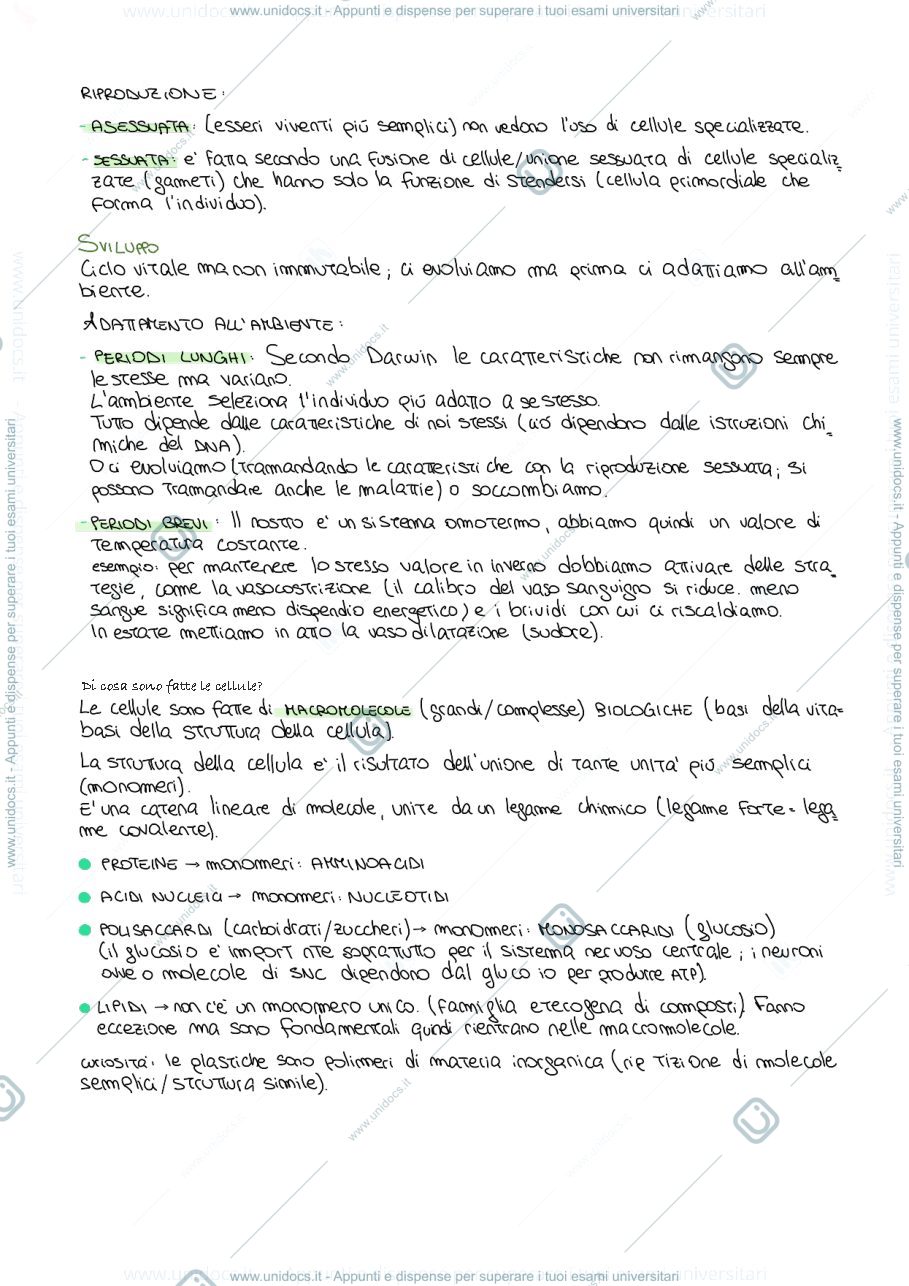 www.unidocs.it - Appunti e dispense per superare i tuoi esami universitari
RIPRODUZIONE:
- ASESSUATA: (esseri viventi più semplici) non vedono l'uso di cellule specializzate.
- SESSUATA: e' fatta secondo una fusione di cellule/unione sessuata di cellule specializ=
zate (gameti) che hanno solo la funzione di stendersi (cellula primordiale che
forma l'individuo).
SVILUPPO
Ciclo vitale ma non immutabile; ci evolviamo ma prima ci adattiamo all'am=
biente.
ADATTAMENTO ALL'AMBIENTE:
- PERIODI LUNGHI: Secondo Darwin le caratteristiche non rimangono sempre
le stesse ma variano.
L'ambiente seleziona l'individuo più adatto a se stesso.
Tutto dipende dalle caratteristiche di noi stessi (ciò dipendono dalle istruzioni chi=
miche del DNA).
O ci evolviamo (tramandando le caratteristi che con la riproduzione sessuata; si
possono tramandare anche le malattie) o soccombiamo.
- PERIODI BREVI: Il nostro e' un sistema omotermo, abbiamo quindi un valore di
temperatura costante.
esempio: per mantenere lo stesso valore in inverno dobbiamo attivare delle stra=
tegie, come la vasocostrizione (il calibro del vaso sanguigno si riduce. meno
sangue significa meno dispendio energetico) e i brividi con cui ci riscaldiamo.
In estate mettiamo in atto la vaso dilatazione (sudore).
Di cosa sono fatte le cellule?
Le cellule sono fatte di MACROMOLECOLE (grandi/complesse) BIOLOGICHE (basi della vita=
basi della struttura della cellula).
La struttura della cellula e' il risultato dell'unione di tante unita' più semplici
(monomeri).
E' una catena lineare di molecole, unite da un legame chimico (legame forte = lega=
me covalente).
● PROTEINE → monomeri: AMMINOACIDI
● ACIDI NUCLEICI → monomeri: NUCLEOTIDI
● POLISACCARIDI (carboidrati/zuccheri) → monomeri: MONOSACCARIDI (glucosio)
(il glucosio e' import nte soprattutto per il sistema nervoso centrale; i neuroni
ovve o molecole di SNC dipendono dal gluco io per produrre ATP).
● LIPIDI → non c'e' un monomero unico. (famiglia eterogena di composti) Fanno
eccezione ma sono fondamentali quindi rientrano nelle macromolecole.
curiosita': le plastiche sono polimeri di materia inorganica (rip tizione di molecole
semplici/struttura simile).
www.unidocs.it - Appunti e dispense per superare i tuoi esami universitari